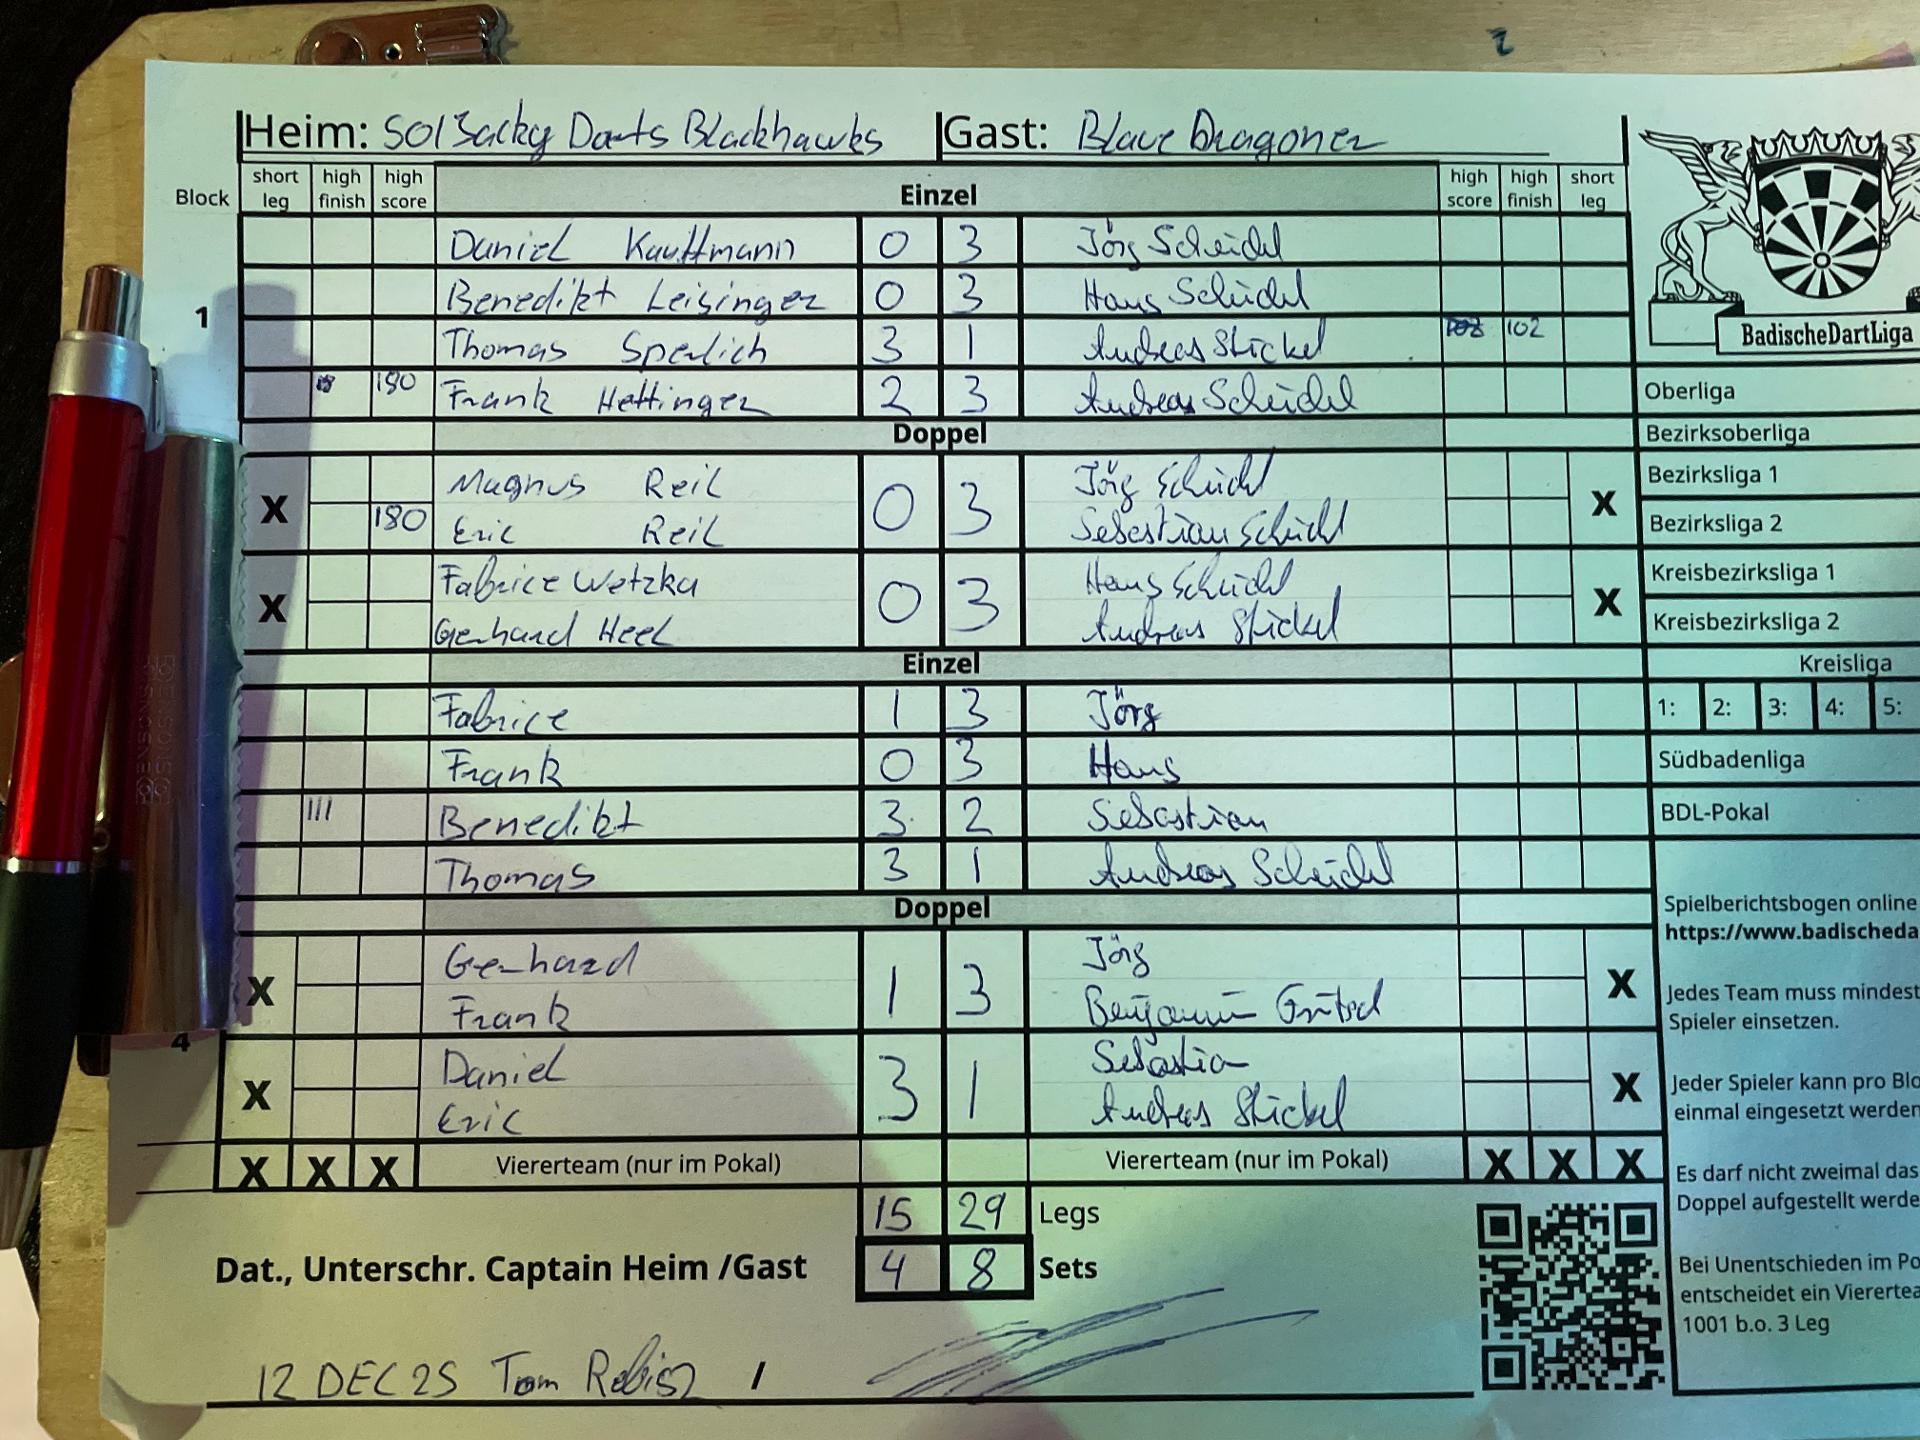 Heim: Sol3acky Darts Blackhawks Gast: Blaue Dragoner
Block short leg high finish high score Einzel high score high finish short leg
Daniel Kauffmann 0 3 Jörg Scheidel
1 Benedikt Leisinger 0 3 Hans Scheidel
Thomas Sperlich 3 1 Andreas Stickel 102
180 Frank Hettinger 2 3 Andreas Scheidel
Doppel
X Magnus Reil 0 3 Jörg Scheidel X
180 Eric Reil Sebastian Scheidel
X Fabrice Wetzka 0 3 Hans Scheidel X
Gerhard Heel Andreas Stickel
Einzel
Fabrice 1 3 Jörg
Frank 0 3 Hans
111 Benedikt 3 2 Sebastian
Thomas 3 1 Andreas Scheidel
Doppel
X Gerhard 1 3 Jörg X
Frank Benjamin
4
X Daniel 3 1 Sebastian X
Eric Andreas Stickel
X X X Viererteam (nur im Pokal) Viererteam (nur im Pokal) X X X
15 29 Legs
Dat., Unterschr. Captain Heim /Gast 4 8 Sets
12 DEC 25 Tom /
BadischeDartLiga
Oberliga
Bezirksoberliga
Bezirksliga 1
Bezirksliga 2
Kreisbezirksliga 1
Kreisbezirksliga 2
Kreisliga
1: 2: 3: 4: 5:
Südbadenliga
BDL-Pokal
Spielberichtsbogen online
https://www.badischeda
Jedes Team muss mindest
Spieler einsetzen.
Jeder Spieler kann pro Blo
einmal eingesetzt werden
Es darf nicht zweimal das
Doppel aufgestellt werde
Bei Unentschieden im Po
entscheidet ein Vierertea
1001 b.o. 3 Leg